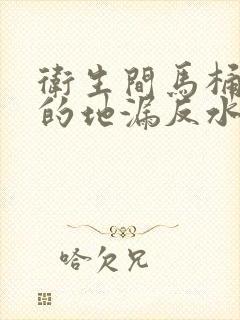 衛生間馬桶
的地漏反水
哈欠兄